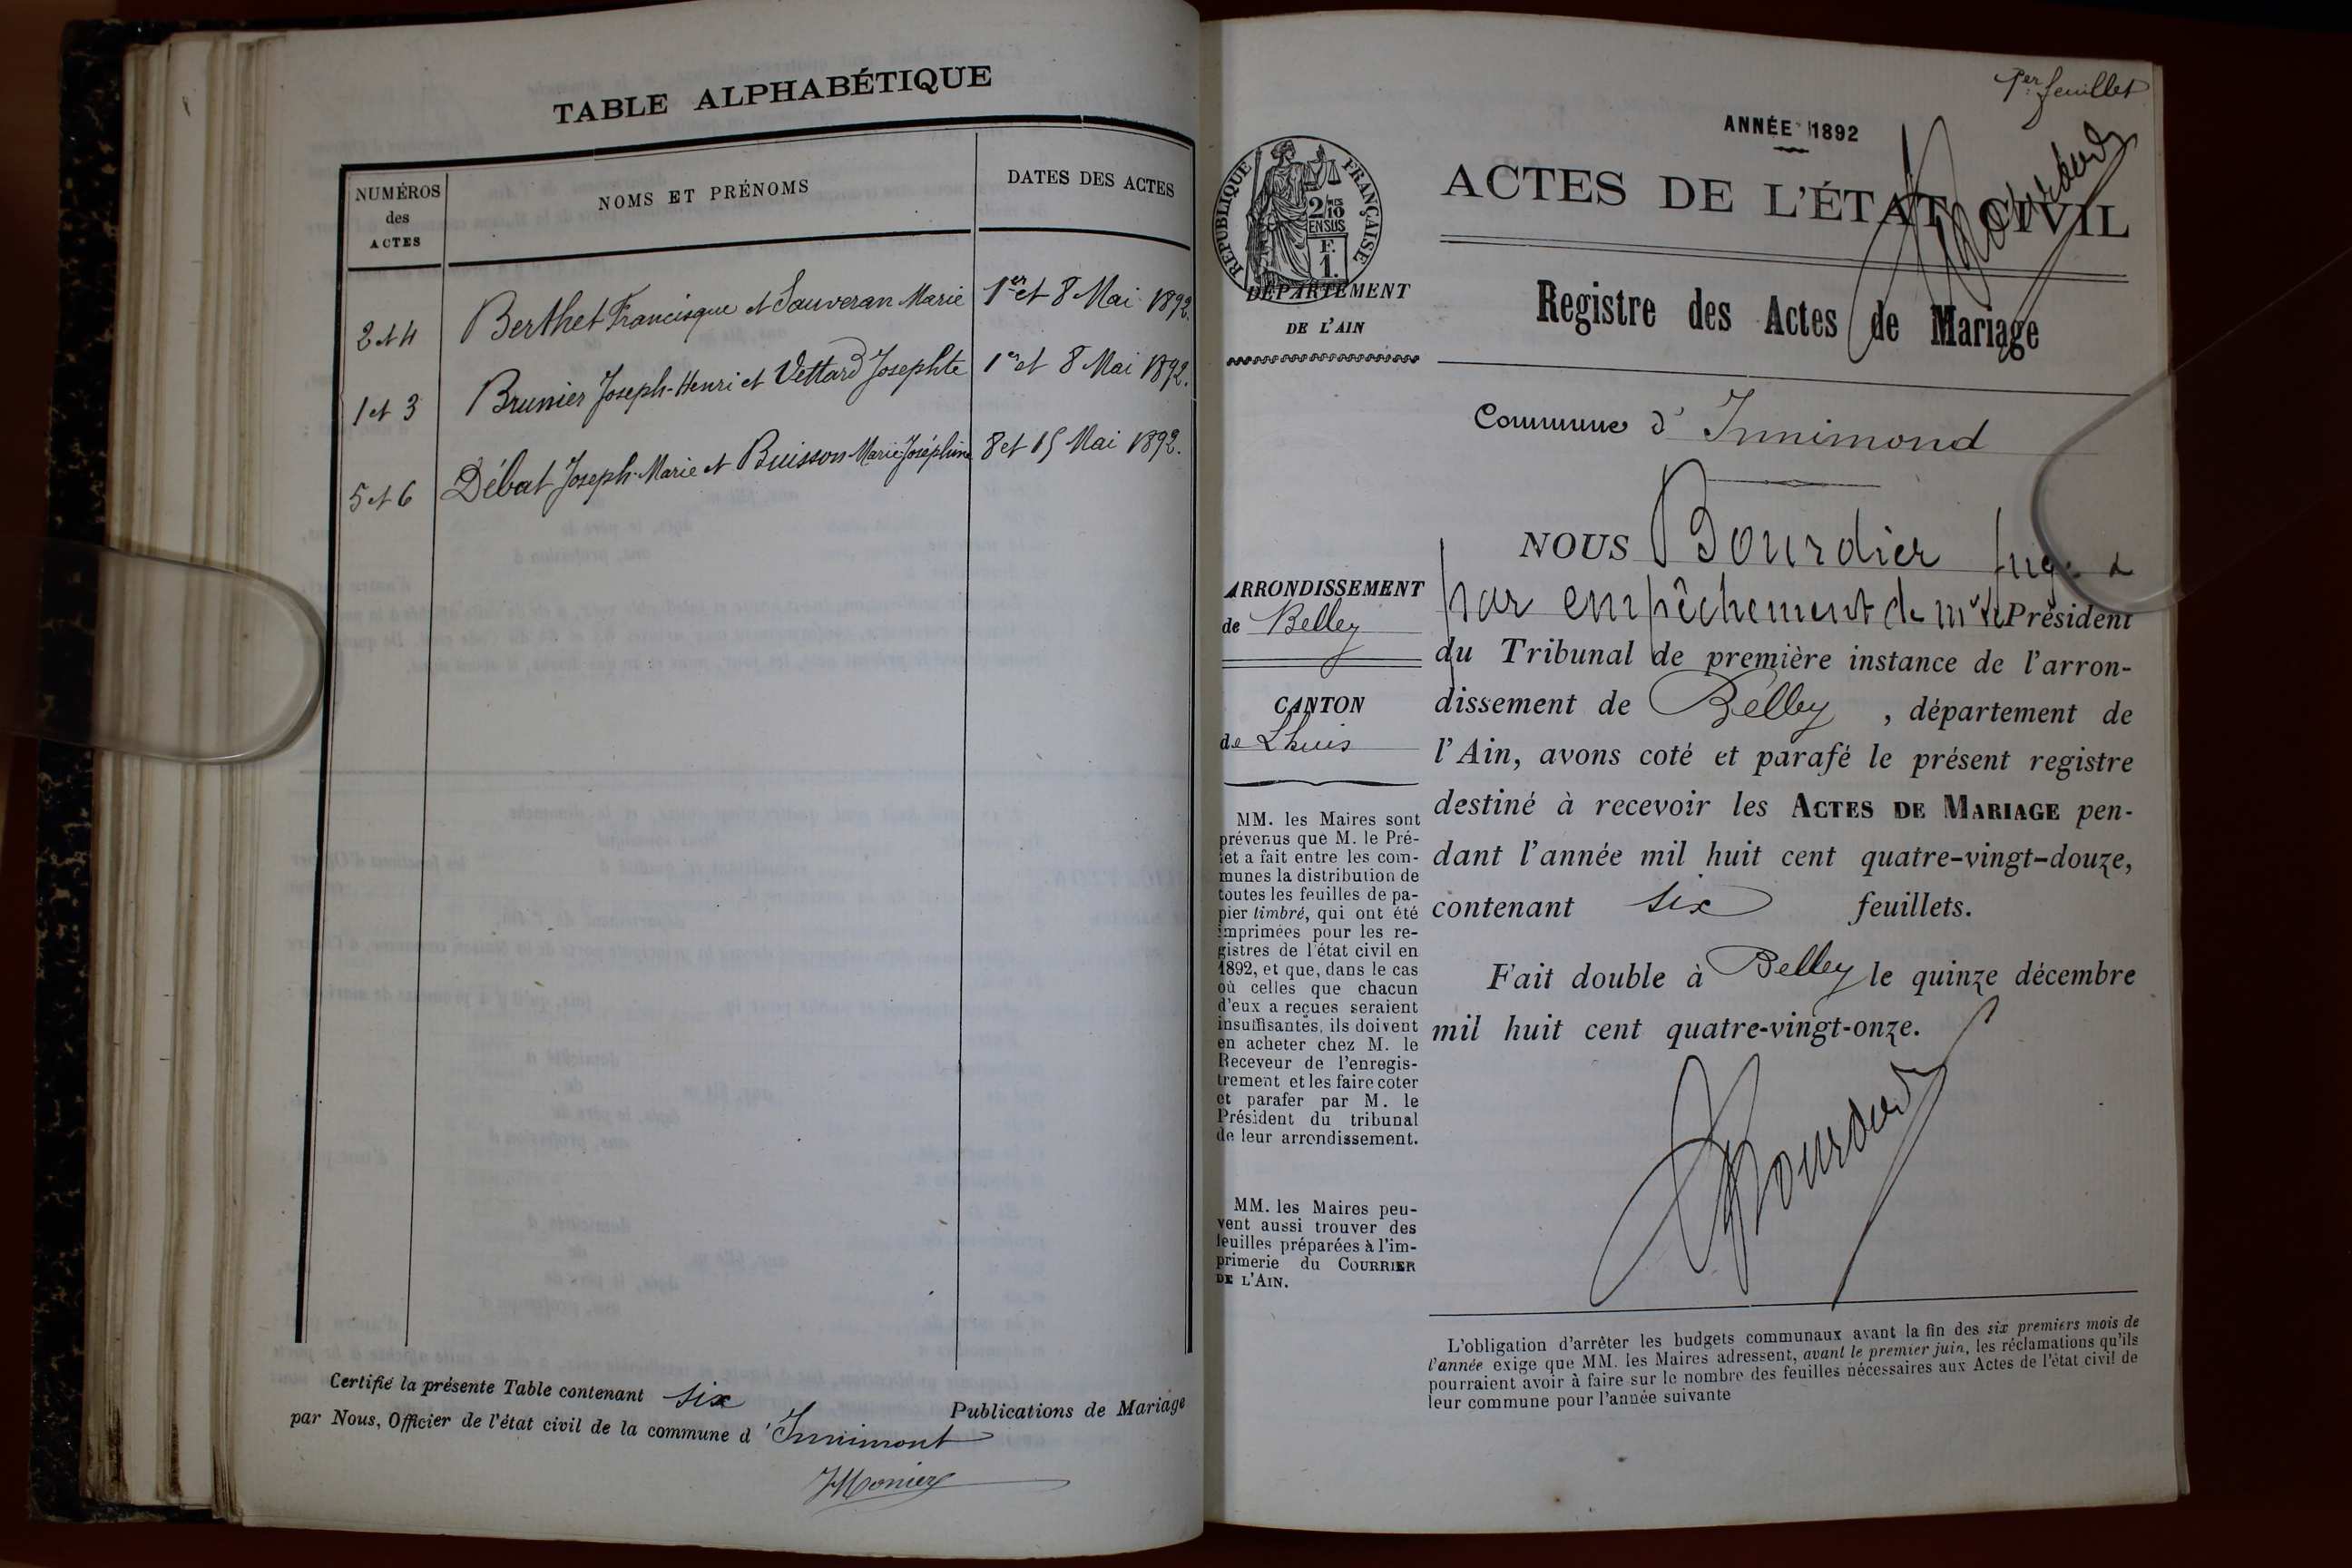 TABLE ALPHABÉTIQUE
NUMÉROS
des
ACTES
NOMS ET PRÉNOMS
DATES DES ACTES
2 et 4 Berthet Francisque et Sauveran Marie 1er et 8 Mai 1892.
1 et 3 Brunier Joseph-Henri et Vettard Josephte 1er et 8 Mai 1892.
5 et 6 Débat Joseph-Marie et Buisson Marie Joséphine 8 et 15 Mai 1892.
Certifié la présente Table contenant six Publications de Mariage
par Nous, Officier de l'état civil de la commune d'Innimont
JMonier
1er feuillet
ANNÉE 1892
ACTES DE L'ÉTAT CIVIL
Bourdier
Registre des Actes de Mariage
Commune d'Innimond
RÉPUBLIQUE FRANÇAISE
2/10mes
EN SUS
F.
1.
DÉPARTEMENT
DE L'AIN
ARRONDISSEMENT
de Belley
CANTON
de Lhuis
MM. les Maires sont
prévenus que M. le Pré-
fet a fait entre les com-
munes la distribution de
toutes les feuilles de pa-
pier timbré, qui ont été
imprimées pour les re-
gistres de l'état civil en
1892, et que, dans le cas
où celles que chacun
d'eux a reçues seraient
insuffisantes, ils doivent
en acheter chez M. le
Receveur de l'enregis-
trement et les faire coter
et parafer par M. le
Président du tribunal
de leur arrondissement.
MM. les Maires peu-
vent aussi trouver des
feuilles préparées à l'im-
primerie du COURRIER
DE L'AIN.
NOUS Bourdier Juge
par empêchement de mr le Président
du Tribunal de première instance de l'arron-
dissement de Belley, département de
l'Ain, avons coté et parafé le présent registre
destiné à recevoir les ACTES DE MARIAGE pen-
dant l'année mil huit cent quatre-vingt-douze,
contenant six feuillets.
Fait double à Belley le quinze décembre
mil huit cent quatre-vingt-onze.
Bourdier
L'obligation d'arrêter les budgets communaux avant la fin des six premiers mois de
l'année exige que MM. les Maires adressent, avant le premier juin, les réclamations qu'ils
pourraient avoir à faire sur le nombre des feuilles nécessaires aux Actes de l'état civil de
leur commune pour l'année suivante